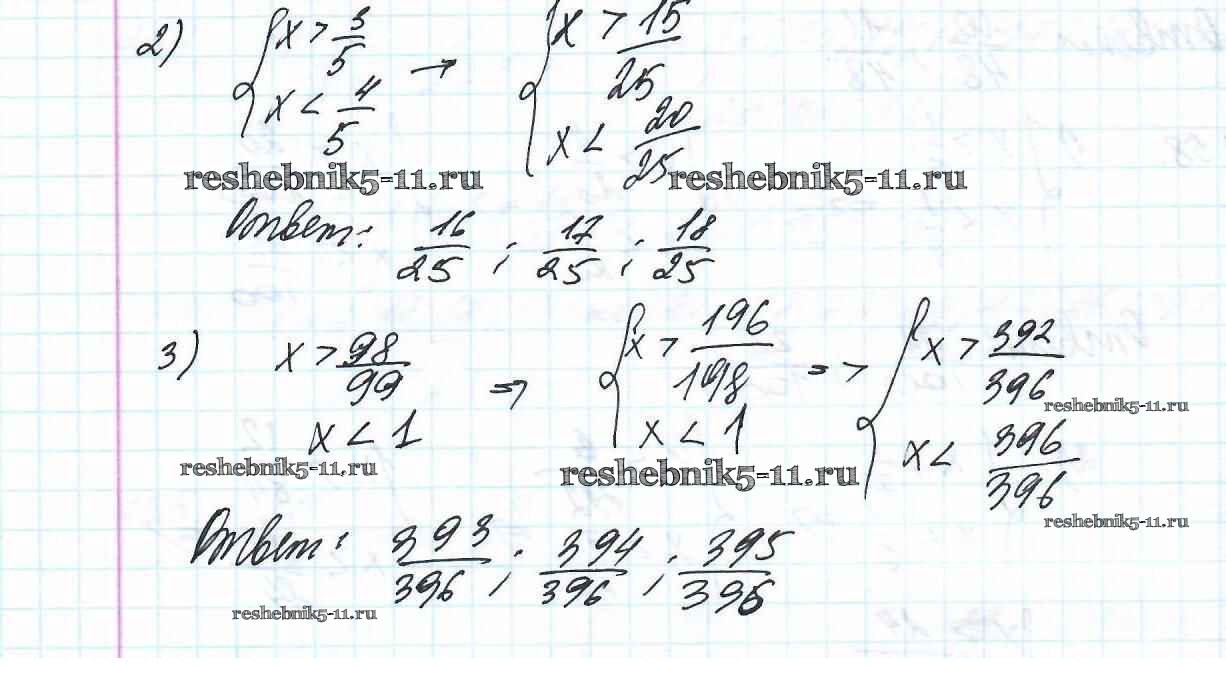 2) { x > 3/5 → { x > 15/25
x < 4/5 x < 20/25
reshebnik5-11.ru reshebnik5-11.ru
Ответ: 16/25 ; 17/25 ; 18/25
3) x > 98/99 => { x > 196/198 => { x > 392/396
reshebnik5-11.ru
x < 1 x < 1 x < 396/396
reshebnik5-11.ru reshebnik5-11.ru
reshebnik5-11.ru
Ответ: 393/396 ; 394/396 ; 395/396
reshebnik5-11.ru